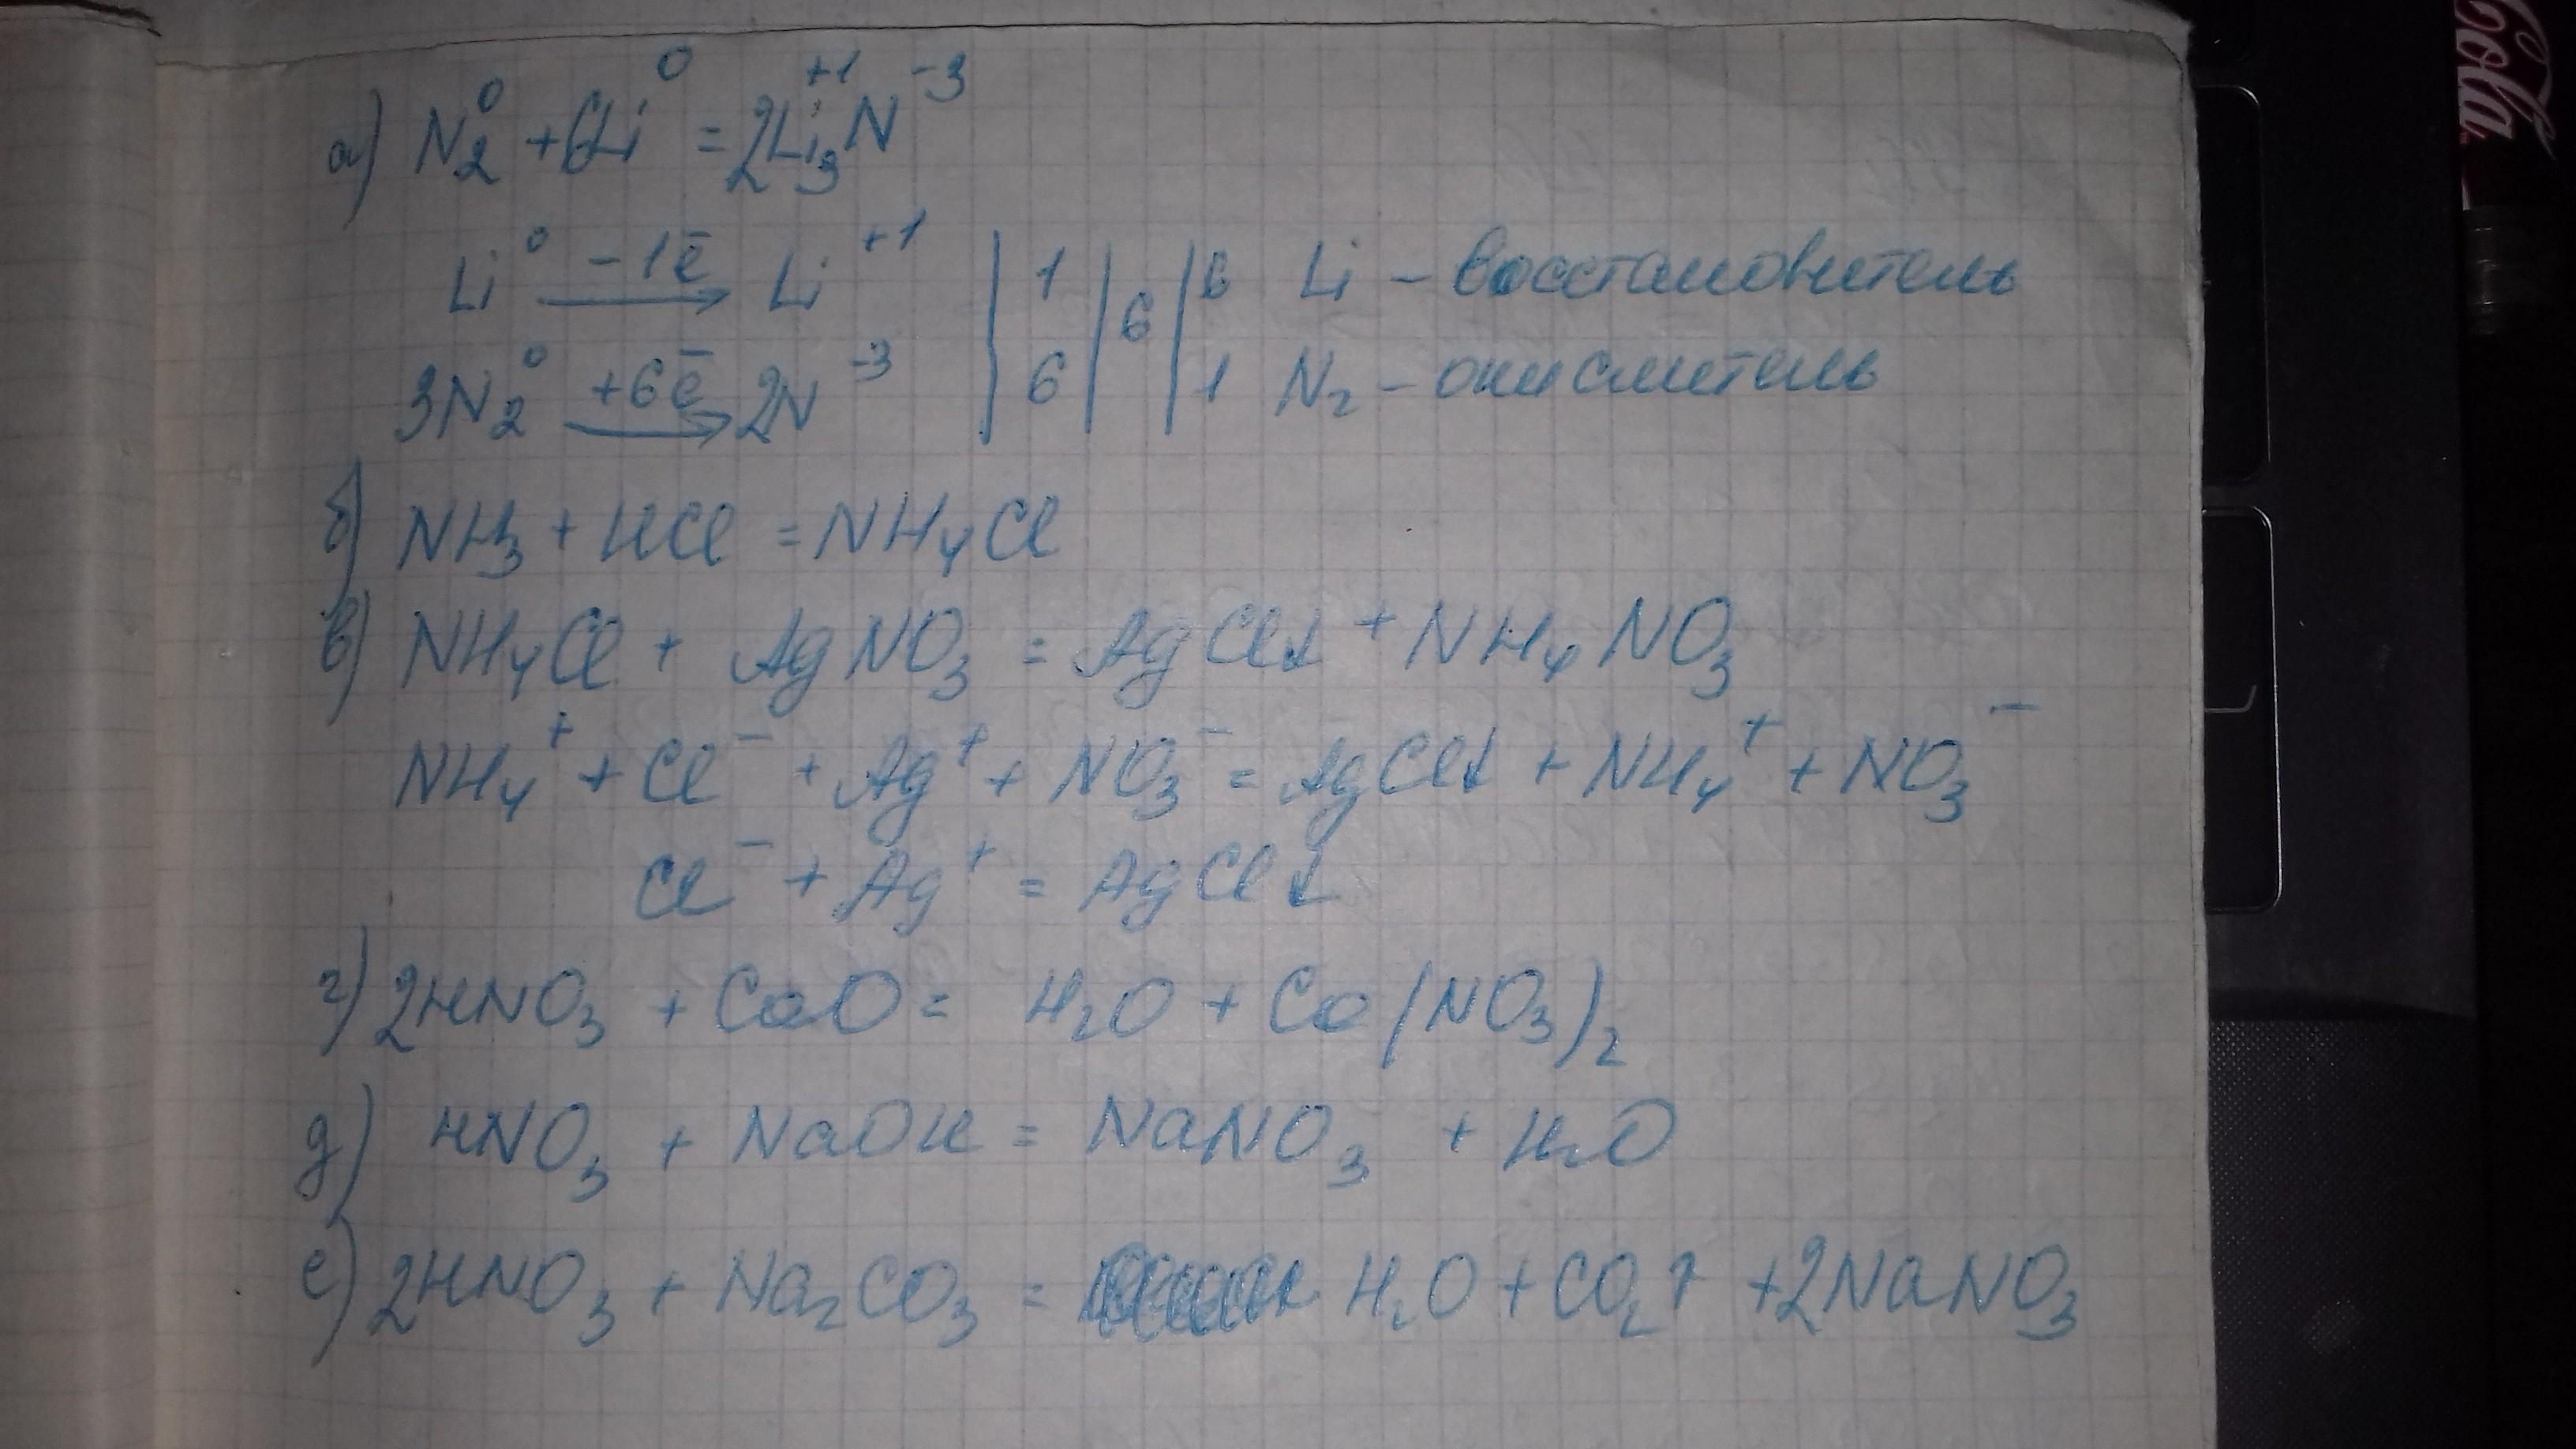 а) N₂⁰ + 6Li⁰ = 2Li₃⁺¹N⁻³
Li⁰ –1ē→ Li⁺¹ | 1 | 6 | 6 Li – восстановитель
3N₂⁰ +6ē→ 2N⁻³ | 6 | | 1 N₂ – окислитель
б) NH₃ + HCl = NH₄Cl
в) NH₄Cl + AgNO₃ = AgCl↓ + NH₄NO₃
NH₄⁺ + Cl⁻ + Ag⁺ + NO₃⁻ = AgCl↓ + NH₄⁺ + NO₃⁻
Cl⁻ + Ag⁺ = AgCl↓
г) 2HNO₃ + CaO = H₂O + Ca(NO₃)₂
д) HNO₃ + NaOH = NaNO₃ + H₂O
е) 2HNO₃ + Na₂CO₃ = H₂O + CO₂↑ + 2NaNO₃
Cola